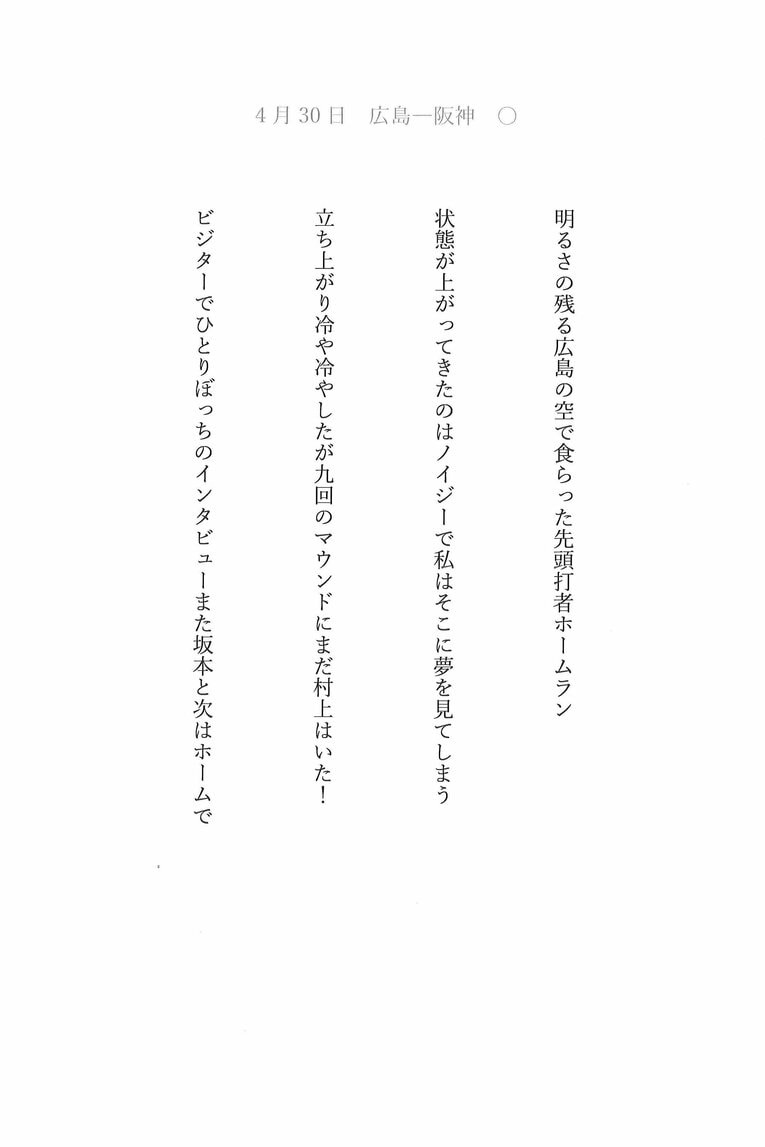 4月30日　広島―阪神　〇
明るさの残る広島の空で食らった先頭打者ホームラン
状態が上がってきたのはノイジーで私はそこに夢を見てしまう
立ち上がり冷や冷やしたが九回のマウンドにまだ村上はいた！
ビジターでひとりぼっちのインタビューまた坂本と次はホームで